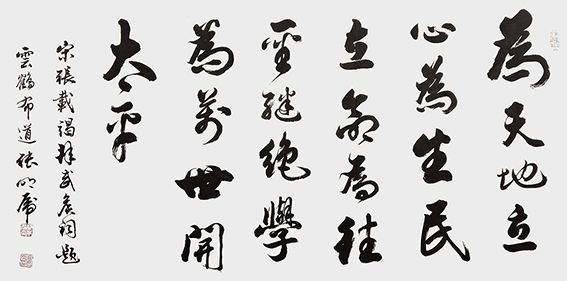 為天地立
心為生民
立命為往
聖繼絕學
為萬世開
太平
宋張載謁拜武侯祠題
雲鶴布道張